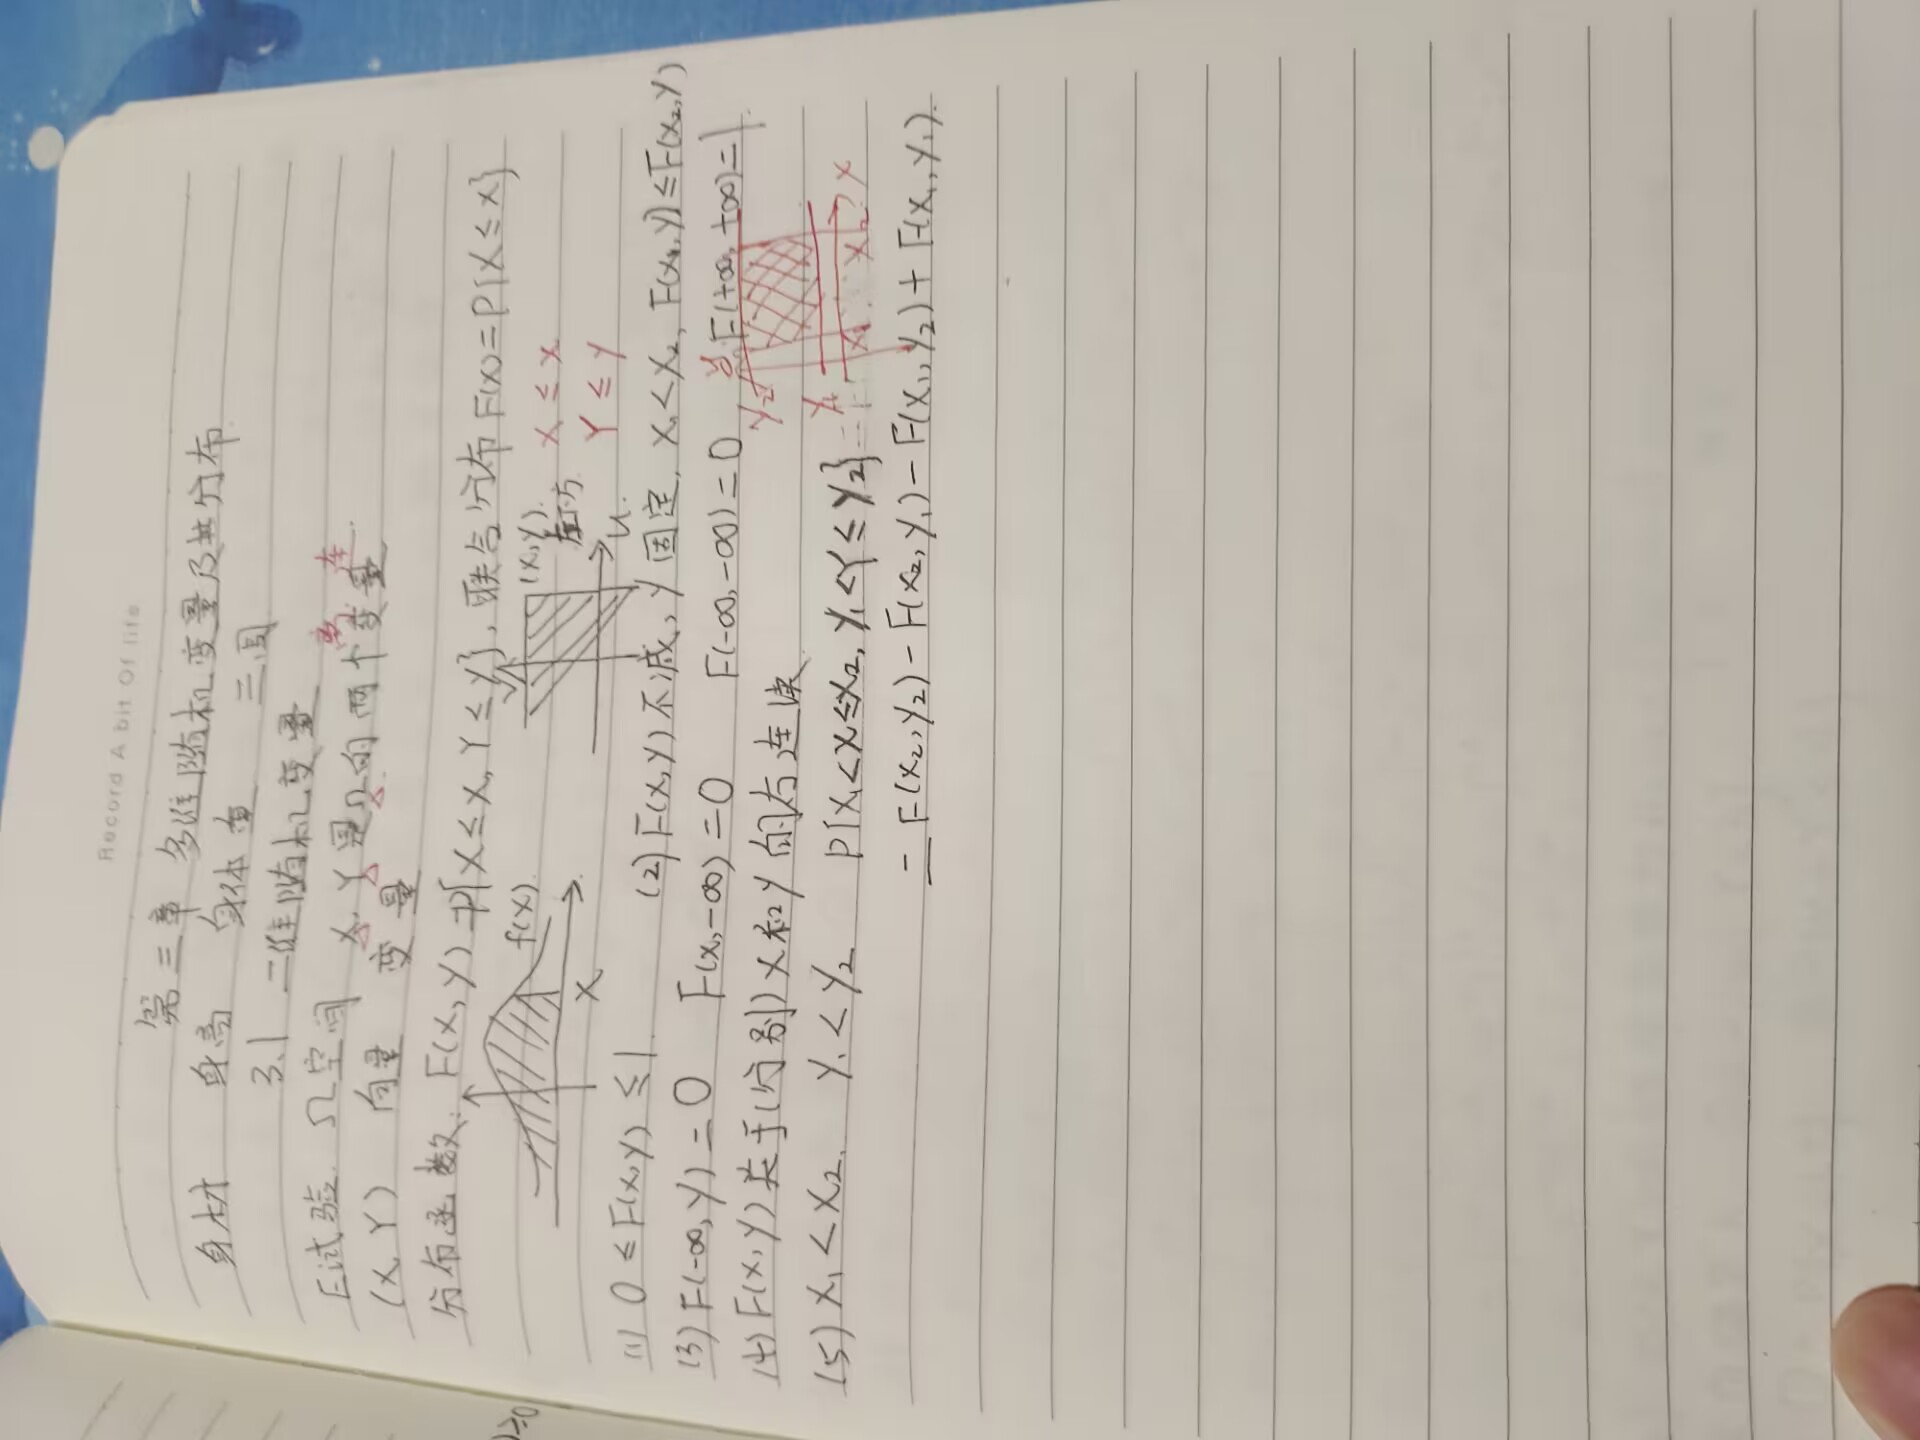 Record A bit Of life
第三章 多维随机变量及其分布
身材 身高 身体重 三围
3.1 二维随机变量
E试验 Ω空间 X,Y是Ω的两个变量
(X,Y) 向量 变量
分布函数: F(x,y)=P{X≤x,Y≤y}, 联合分布 F(x)=P{X≤x}
f(x) (x,y) 左下方 X≤x
x u Y≤y
(1) 0≤F(x,y)≤1 (2)F(x,y)不减, y固定, x₁<x₂, F(x₁,y)≤F(x₂,y)
(3)F(-∞,y)=0 F(x,-∞)=0 F(-∞,-∞)=0 F(+∞,+∞)=1
(4)F(x,y)关于(分别)x和y的右连续
y y₂ y₁ x₁ x₂ x
(5)x₁<x₂ y₁<y₂ P{x₁<X≤x₂, y₁<Y≤y₂}=
=F(x₂,y₂)-F(x₂,y₁)-F(x₁,y₂)+F(x₁,y₁).